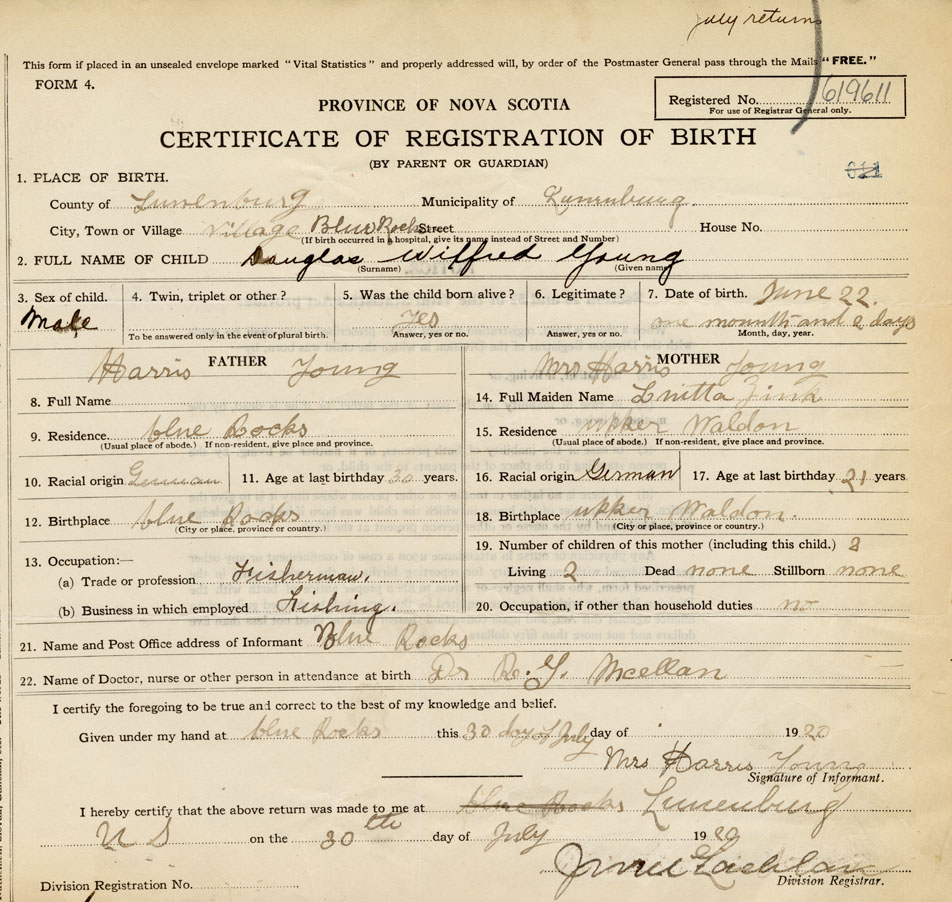 July returns
This form if placed in an unsealed envelope marked "Vital Statistics" and properly addressed will, by order of the Postmaster General pass through the Mails "FREE."
FORM 4.
Registered No. 619611
For use of Registrar General only.
PROVINCE OF NOVA SCOTIA
CERTIFICATE OF REGISTRATION OF BIRTH
(BY PARENT OR GUARDIAN)
1. PLACE OF BIRTH.
County of Lunenburg Municipality of Lunenburg.
City, Town or Village village Blue Rocks Street House No.
(If birth occurred in a hospital, give its name instead of Street and Number)
2. FULL NAME OF CHILD Douglas Wilfred Young
(Surname) (Given name)
3. Sex of child. 4. Twin, triplet or other? 5. Was the child born alive? 6. Legitimate? 7. Date of birth. June 22.
Male yes one mounth and 2 days
To be answered only in the event of plural birth. Answer, yes or no. Answer, yes or no. Month, day, year.
FATHER MOTHER
Harris Young Mrs Harris Young
8. Full Name 14. Full Maiden Name Zink
9. Residence. blue Rocks 15. Residence upper Waldon
(Usual place of abode.) If non-resident, give place and province. (Usual place of abode.) If non-resident, give place and province.
10. Racial origin German 11. Age at last birthday 30 years. 16. Racial origin German 17. Age at last birthday 21 years
12. Birthplace blue Rocks 18. Birthplace upper Waldon.
(City or place, province or country.) (City or place, province or country.)
13. Occupation:— 19. Number of children of this mother (including this child.) 2
(a) Trade or profession Fisherman. Living 2 Dead none Stillborn none
(b) Business in which employed Fishing. 20. Occupation, if other than household duties no
21. Name and Post Office address of Informant Blue Rocks
22. Name of Doctor, nurse or other person in attendance at birth Dr R. G. Mcellan
I certify the foregoing to be true and correct to the best of my knowledge and belief.
Given under my hand at blue Rocks this 30 day of July day of 1920
Mrs Harris Young
Signature of Informant.
I hereby certify that the above return was made to me at blue Rocks Lunenburg
N S on the 30th day of July 1920
Division Registration No. Division Registrar.